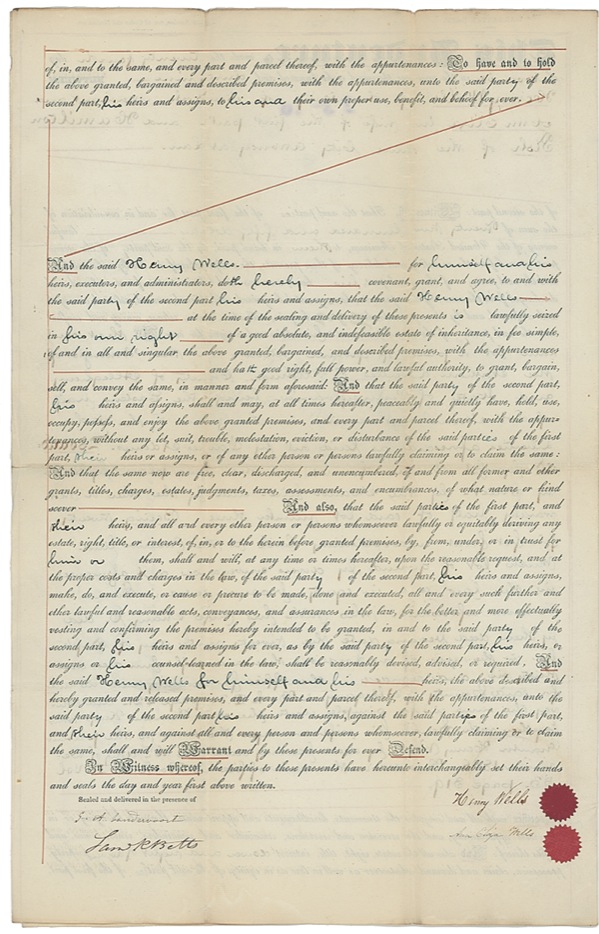 of, in, and to the same, and every part and parcel thereof, with the appurtenances: To have and to hold
the above granted, bargained and described premises, with the appurtenances, unto the said party of the
second part, his heirs and assigns, to his and their own proper use, benefit, and behoof for ever.
And the said Henry Wells for himself and his
heirs, executors, and administrators, doth hereby covenant, grant, and agree, to and with
the said party of the second part his heirs and assigns, that the said Henry Wells
at the time of the sealing and delivery of these presents is lawfully seized
in his own right of a good absolute, and indefeasible estate of inheritance, in fee simple,
of and in all and singular the above granted, bargained, and described premises, with the appurtenances
and hath good right, full power, and lawful authority, to grant, bargain,
sell, and convey the same, in manner and form aforesaid: And that the said party of the second part,
his heirs and assigns, shall and may, at all times hereafter, peaceably and quietly have, hold, use,
occupy, possess, and enjoy the above granted premises, and every part and parcel thereof, with the appur-
tenances, without any let, suit, trouble, molestation, eviction, or disturbance of the said parties of the first
part, their heirs or assigns, or of any other person or persons lawfully claiming or to claim the same:
And that the same now are free, clear, discharged, and unencumbered, of and from all former and other
grants, titles, charges, estates, judgments, taxes, assessments, and encumbrances, of what nature or kind
soever And also, that the said parties of the first part, and
their heirs, and all and every other person or persons whomsoever lawfully or equitably deriving any
estate, right, title, or interest, of, in, or to the herein before granted premises, by, from, under, or in trust for
him or them, shall and will, at any time or times hereafter, upon the reasonable request, and at
the proper costs and charges in the law, of the said party of the second part, his heirs and assigns,
make, do, and execute, or cause or procure to be made, done and executed, all and every such further and
other lawful and reasonable acts, conveyances, and assurances in the law, for the better and more effectually
vesting and confirming the premises hereby intended to be granted, in and to the said party of the
second part, his heirs and assigns for ever, as by the said party of the second part, his heirs, or
assigns or his counsel learned in the law, shall be reasonably devised, advised, or required. And
the said Henry Wells for himself and his heirs, the above described and
hereby granted and released premises, and every part and parcel thereof, with the appurtenances, unto the
said party of the second part his heirs and assigns, against the said parties of the first part,
and their heirs, and against all and every person and persons whomsoever, lawfully claiming or to claim
the same, shall and will Warrant and by these presents for ever Defend.
In Witness whereof, the parties to these presents have hereunto interchangeably set their hands
and seals the day and year first above written.
Sealed and delivered in the presence of
Henry Wells
Wells
Saml R Betts